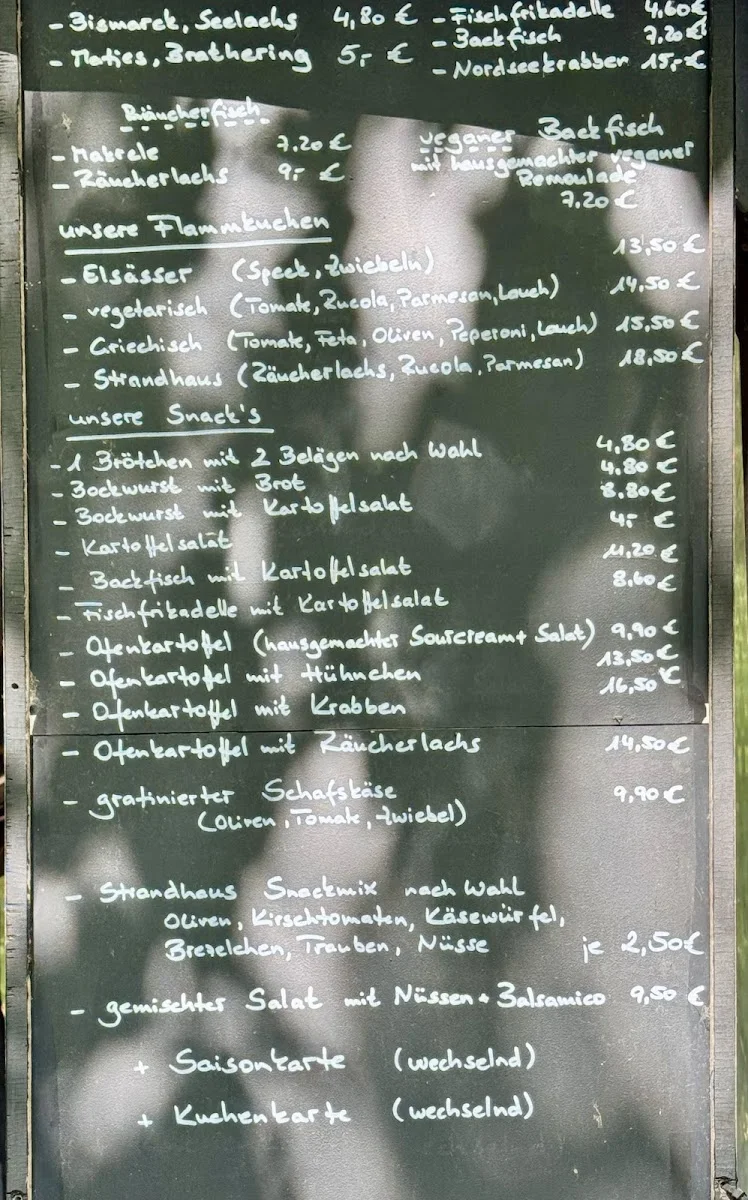 - Bismarck, Seelachs 4,80 €
- Matjes, Brathering 5,- €
- Fischfrikadelle 4,60€
- Backfisch 7,20€
- Nordseekrabben 15,-€
Räucherfisch
- Makrele 7.20 €
- Räucherlachs 9,- €
veganer Backfisch
mit hausgemachter veganer
Remoulade
7,20 €
unsere Flammkuchen
- Elsässer (Speck, Zwiebeln) 13,50 €
- vegetarisch (Tomate, Rucola, Parmesan, Lauch) 14,50 €
- Griechisch (Tomate, Feta, Oliven, Peperoni, Lauch) 15,50 €
- Strandhaus (Räucherlachs, Rucola, Parmesan) 18,50€
unsere Snack's
- 1 Brötchen mit 2 Belägen nach Wahl 4,80 €
- Bockwurst mit Brot 4.80 €
- Bockwurst mit Kartoffelsalat 8.80€
- Kartoffelsalat 4,- €
- Backfisch mit Kartoffelsalat 11,20 €
- Fischfrikadelle mit Kartoffelsalat 8,60€
- Ofenkartoffel (hausgemachter Sourcream + Salat) 9,90 €
- Ofenkartoffel mit Hühnchen 13,50€
- Ofenkartoffel mit Krabben 16,50€
- Ofenkartoffel mit Räucherlachs 14,50€
- gratinierter Schafskäse 9,90 €
(Oliven, Tomate, Zwiebel)
- Strandhaus Snackmix nach Wahl
Oliven, Kirschtomaten, Käsewürfel,
Brezelchen, Trauben, Nüsse je 2,50€
- gemischter Salat mit Nüssen + Balsamico 9,50 €
+ Saisonkarte (wechselnd)
+ Kuchenkarte (wechselnd)